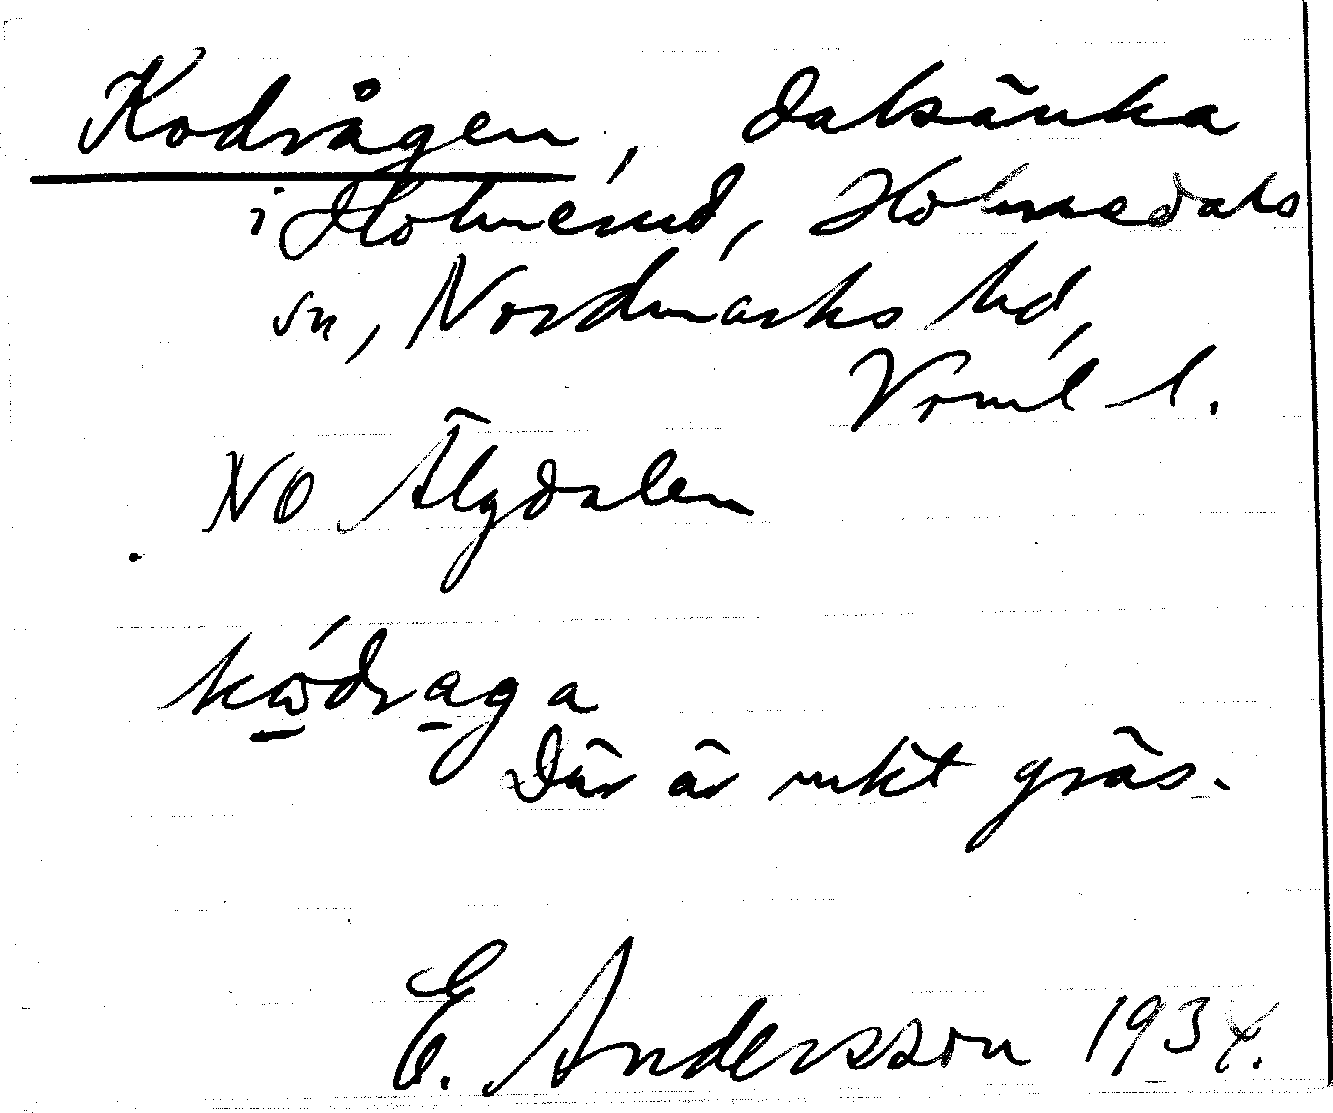 Kodrågen, dalsänka
i Holmerud, Holmedals
sn, Nordmarks hd,
Vrml l.
NO Älgdalen
kǿdraga
Där är rikt gräs.
E. Andersson 1934.